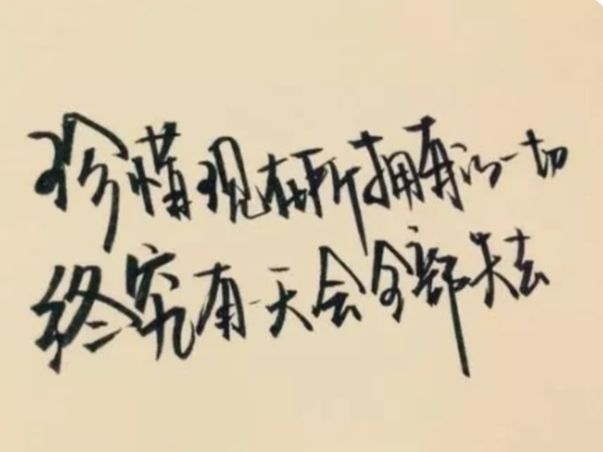 珍惜现在所拥有的一切
终究有一天会全部失去